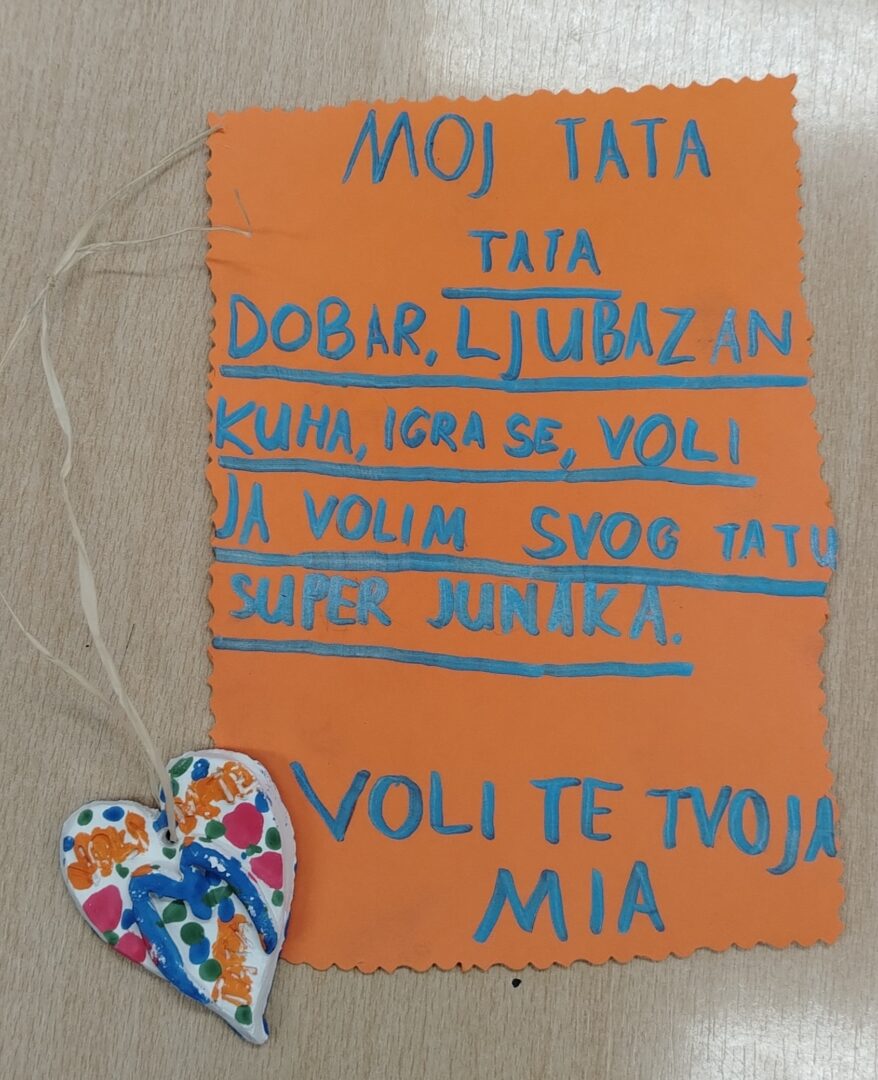 MOJ TATA
TATA
DOBAR, LJUBAZAN
KUHA, IGRA SE, VOLI
JA VOLIM SVOG TATU
SUPER JUNAKA.
VOLI TE TVOJA
MIA
M